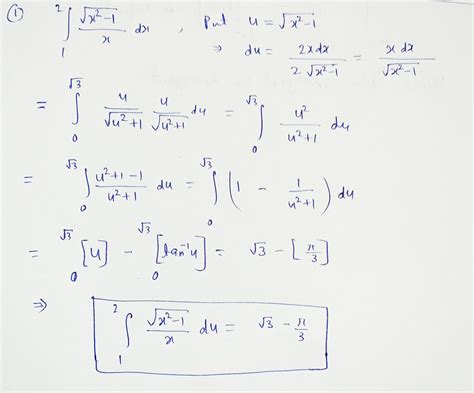 ① ∫₁² √(x²-1)/x dx , Put u = √(x²-1)
⇒ du = 2x dx / 2√(x²-1) = x dx / √(x²-1)
= ∫₀^√3 u/√(u²+1) u/√(u²+1) du = ∫₀^√3 u²/(u²+1) du
= ∫₀^√3 (u²+1-1)/(u²+1) du = ∫₀^√3 (1 - 1/(u²+1)) du
= ₀^√3[u] - ₀^√3[tan⁻¹u] = √3 - [π/3]
⇒ ∫₁² √(x²-1)/x du = √3 - π/3